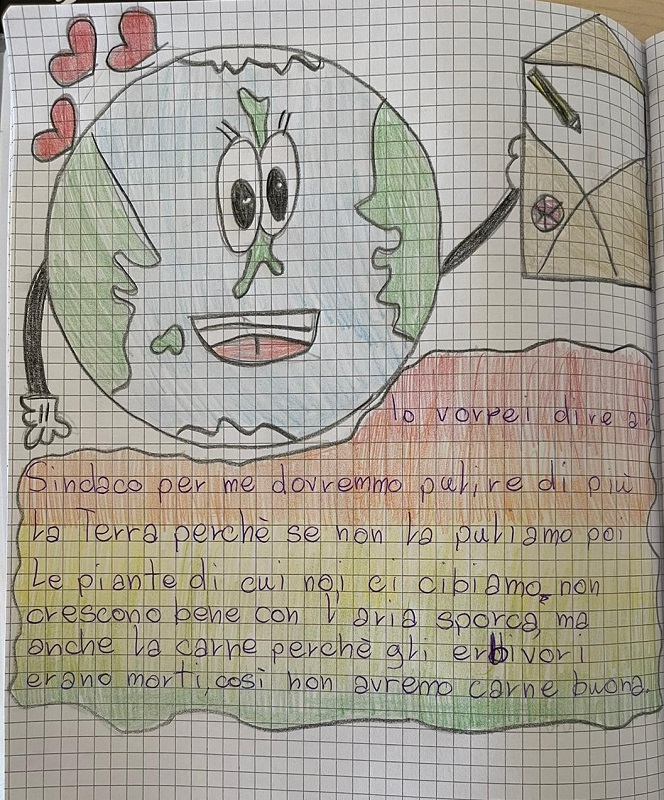 Io vorrei dire al
Sindaco per me dovremmo pulire di più
la Terra perchè se non la puliamo poi
le piante di cui noi ci cibiamo, non
crescono bene con l'aria sporca, ma
anche la carne perchè gli erbivori
erano morti, così non avremo carne buona.